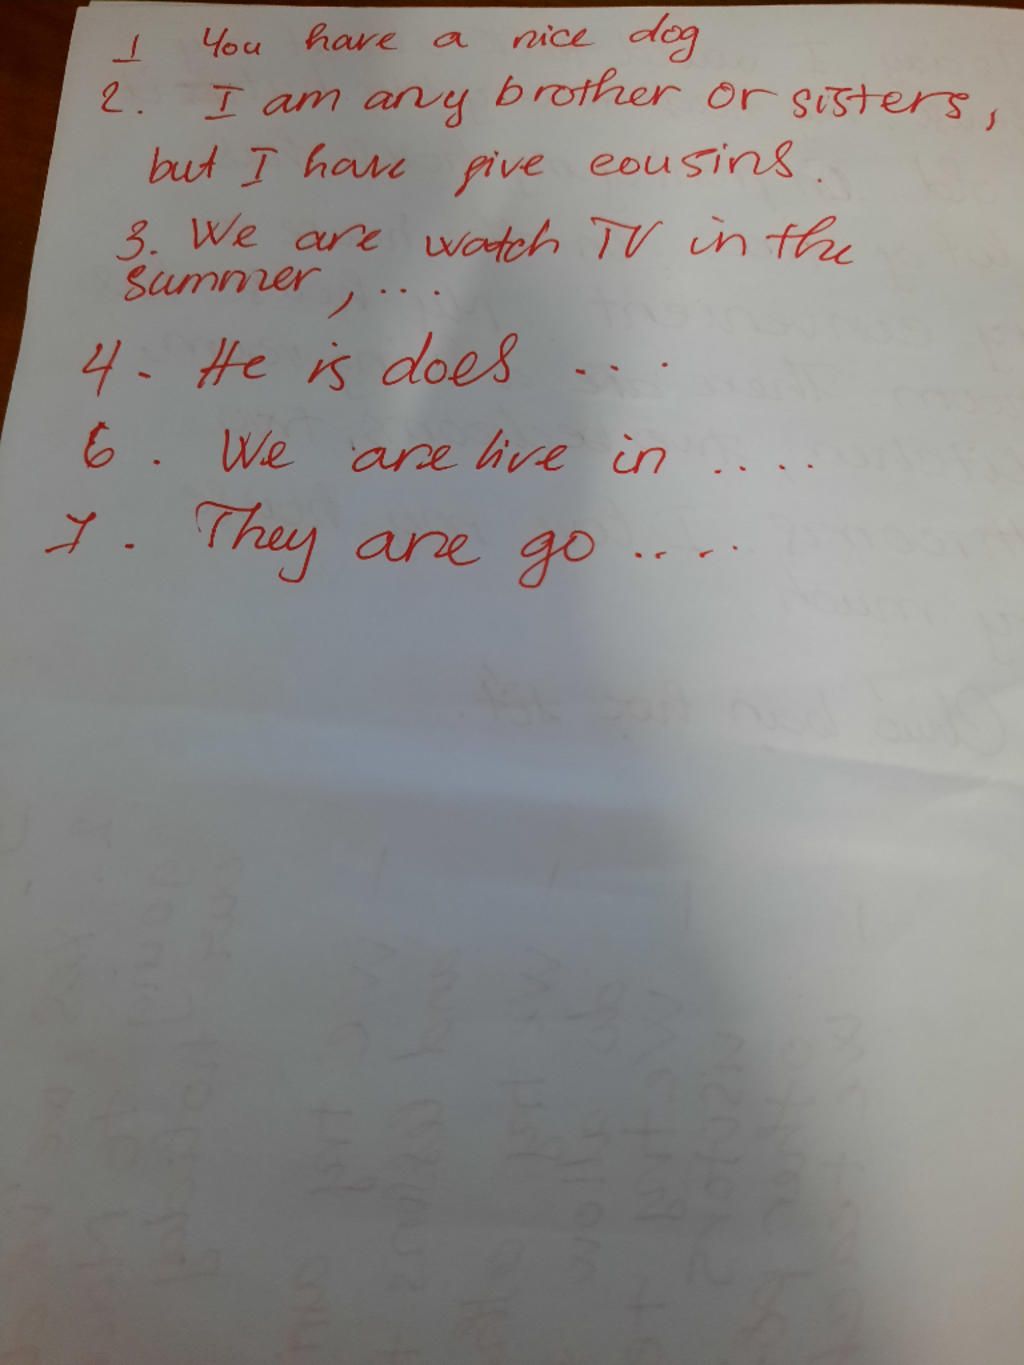 1 You have a nice dog
2. I am any brother or sisters,
but I have give cousins.
3. We are watch TV in the
summer, ...
4. He is does ....
6. We are live in ....
7. They are go ....